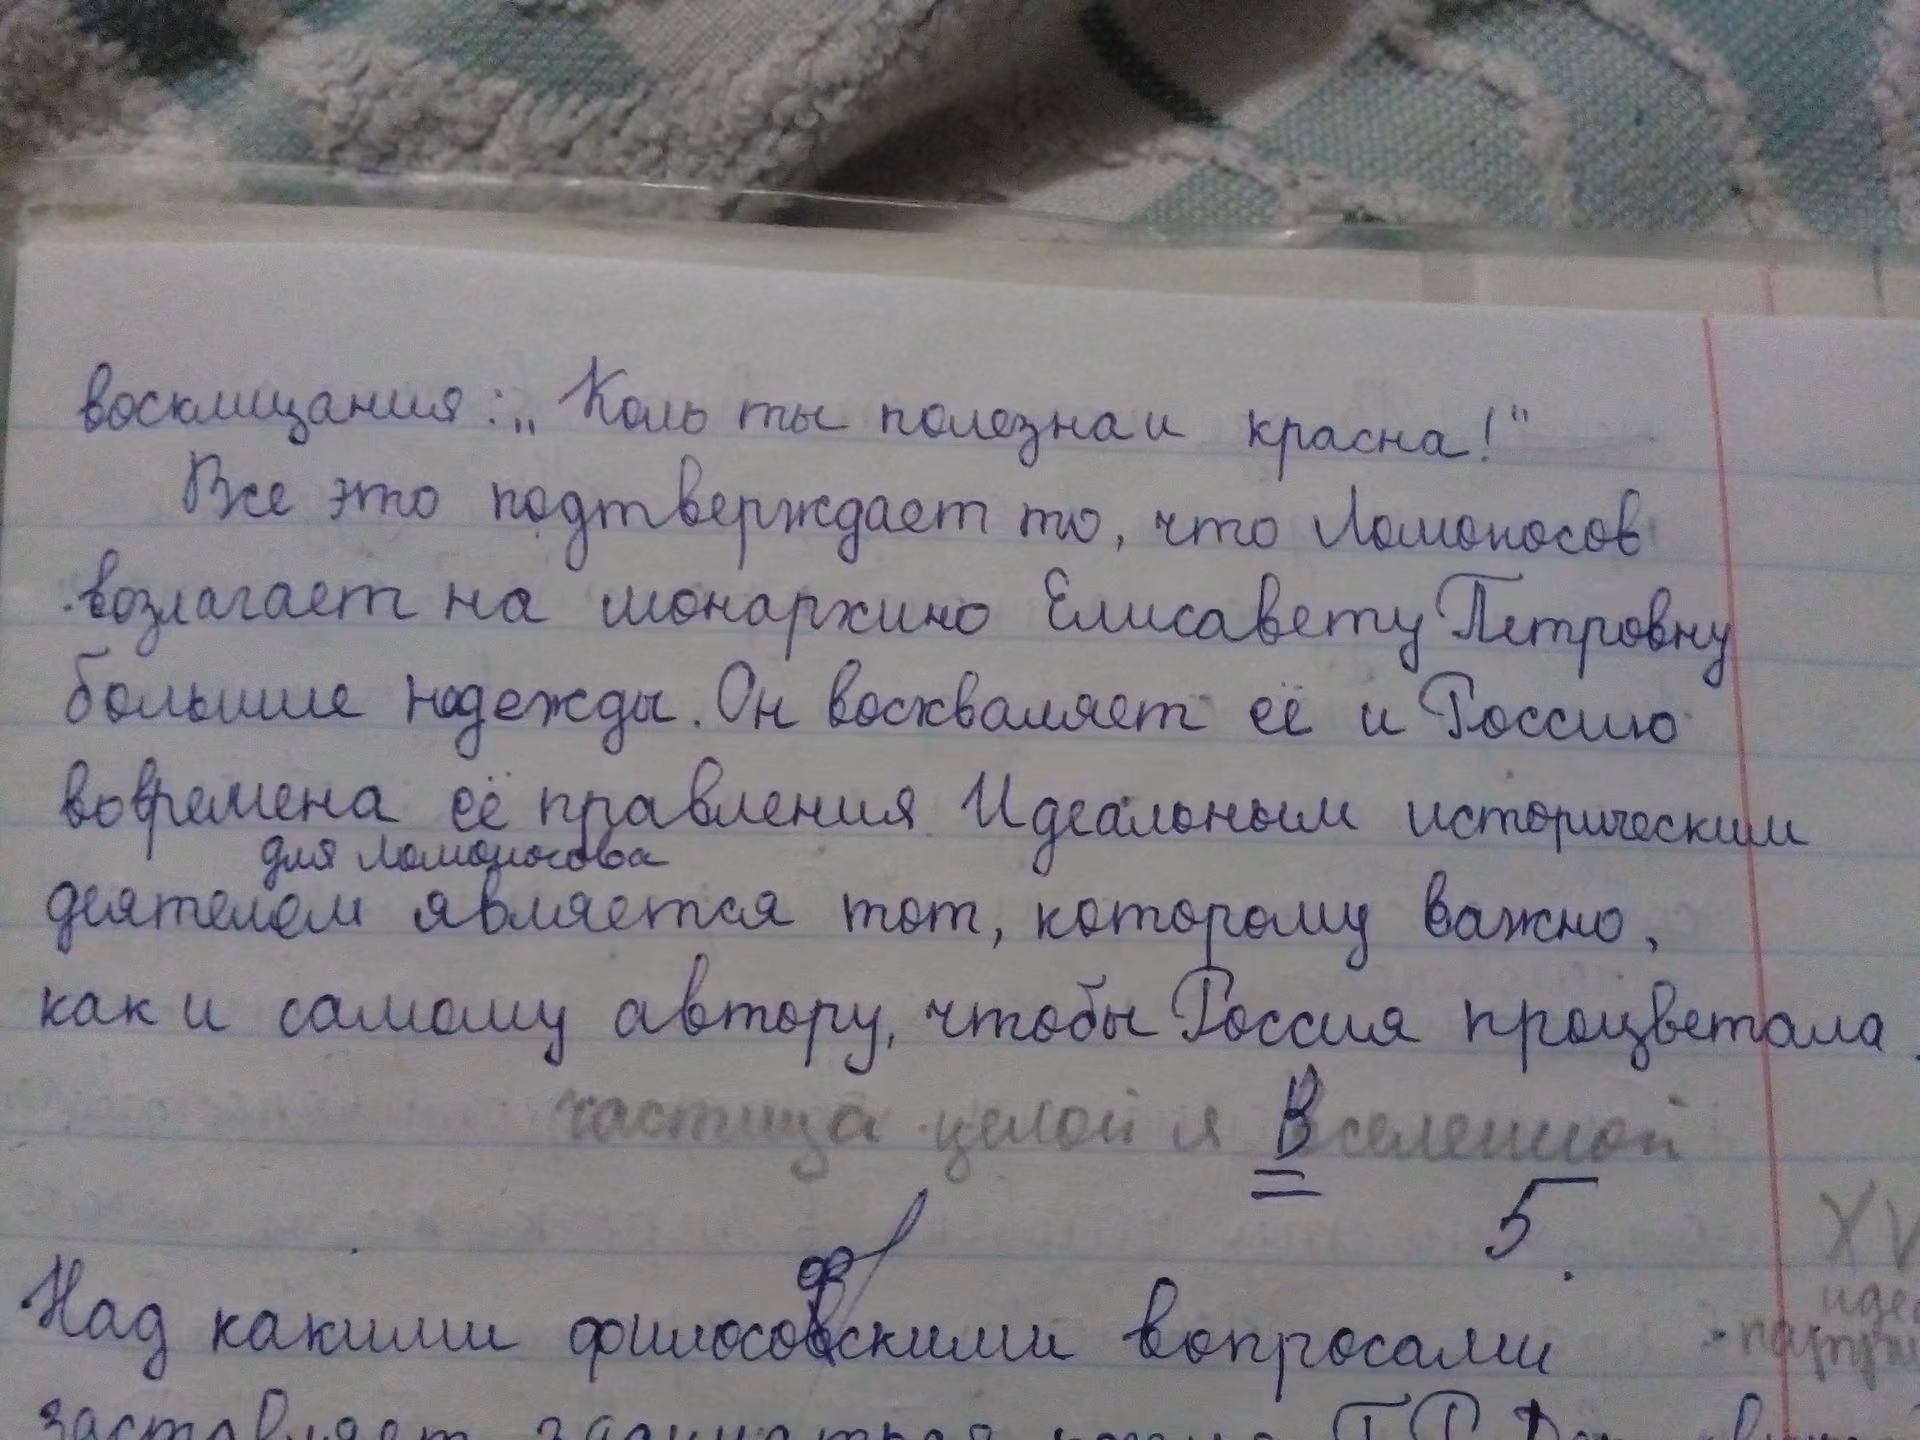 восклицания: „Коль ты полезна и красна!“
Все это подтверждает то, что Ломоносов
возлагает на монархиню Елисавету Петровну
большие надежды. Он восхваляет её и Россию
во времена её правления. Идеальным историческим
для Ломоносова
деятелем является тот, которому важно,
как и самому автору, чтобы Россия процветала.
частица целой я Вселенной
5
Над какими философскими вопросами
заставляет задуматься